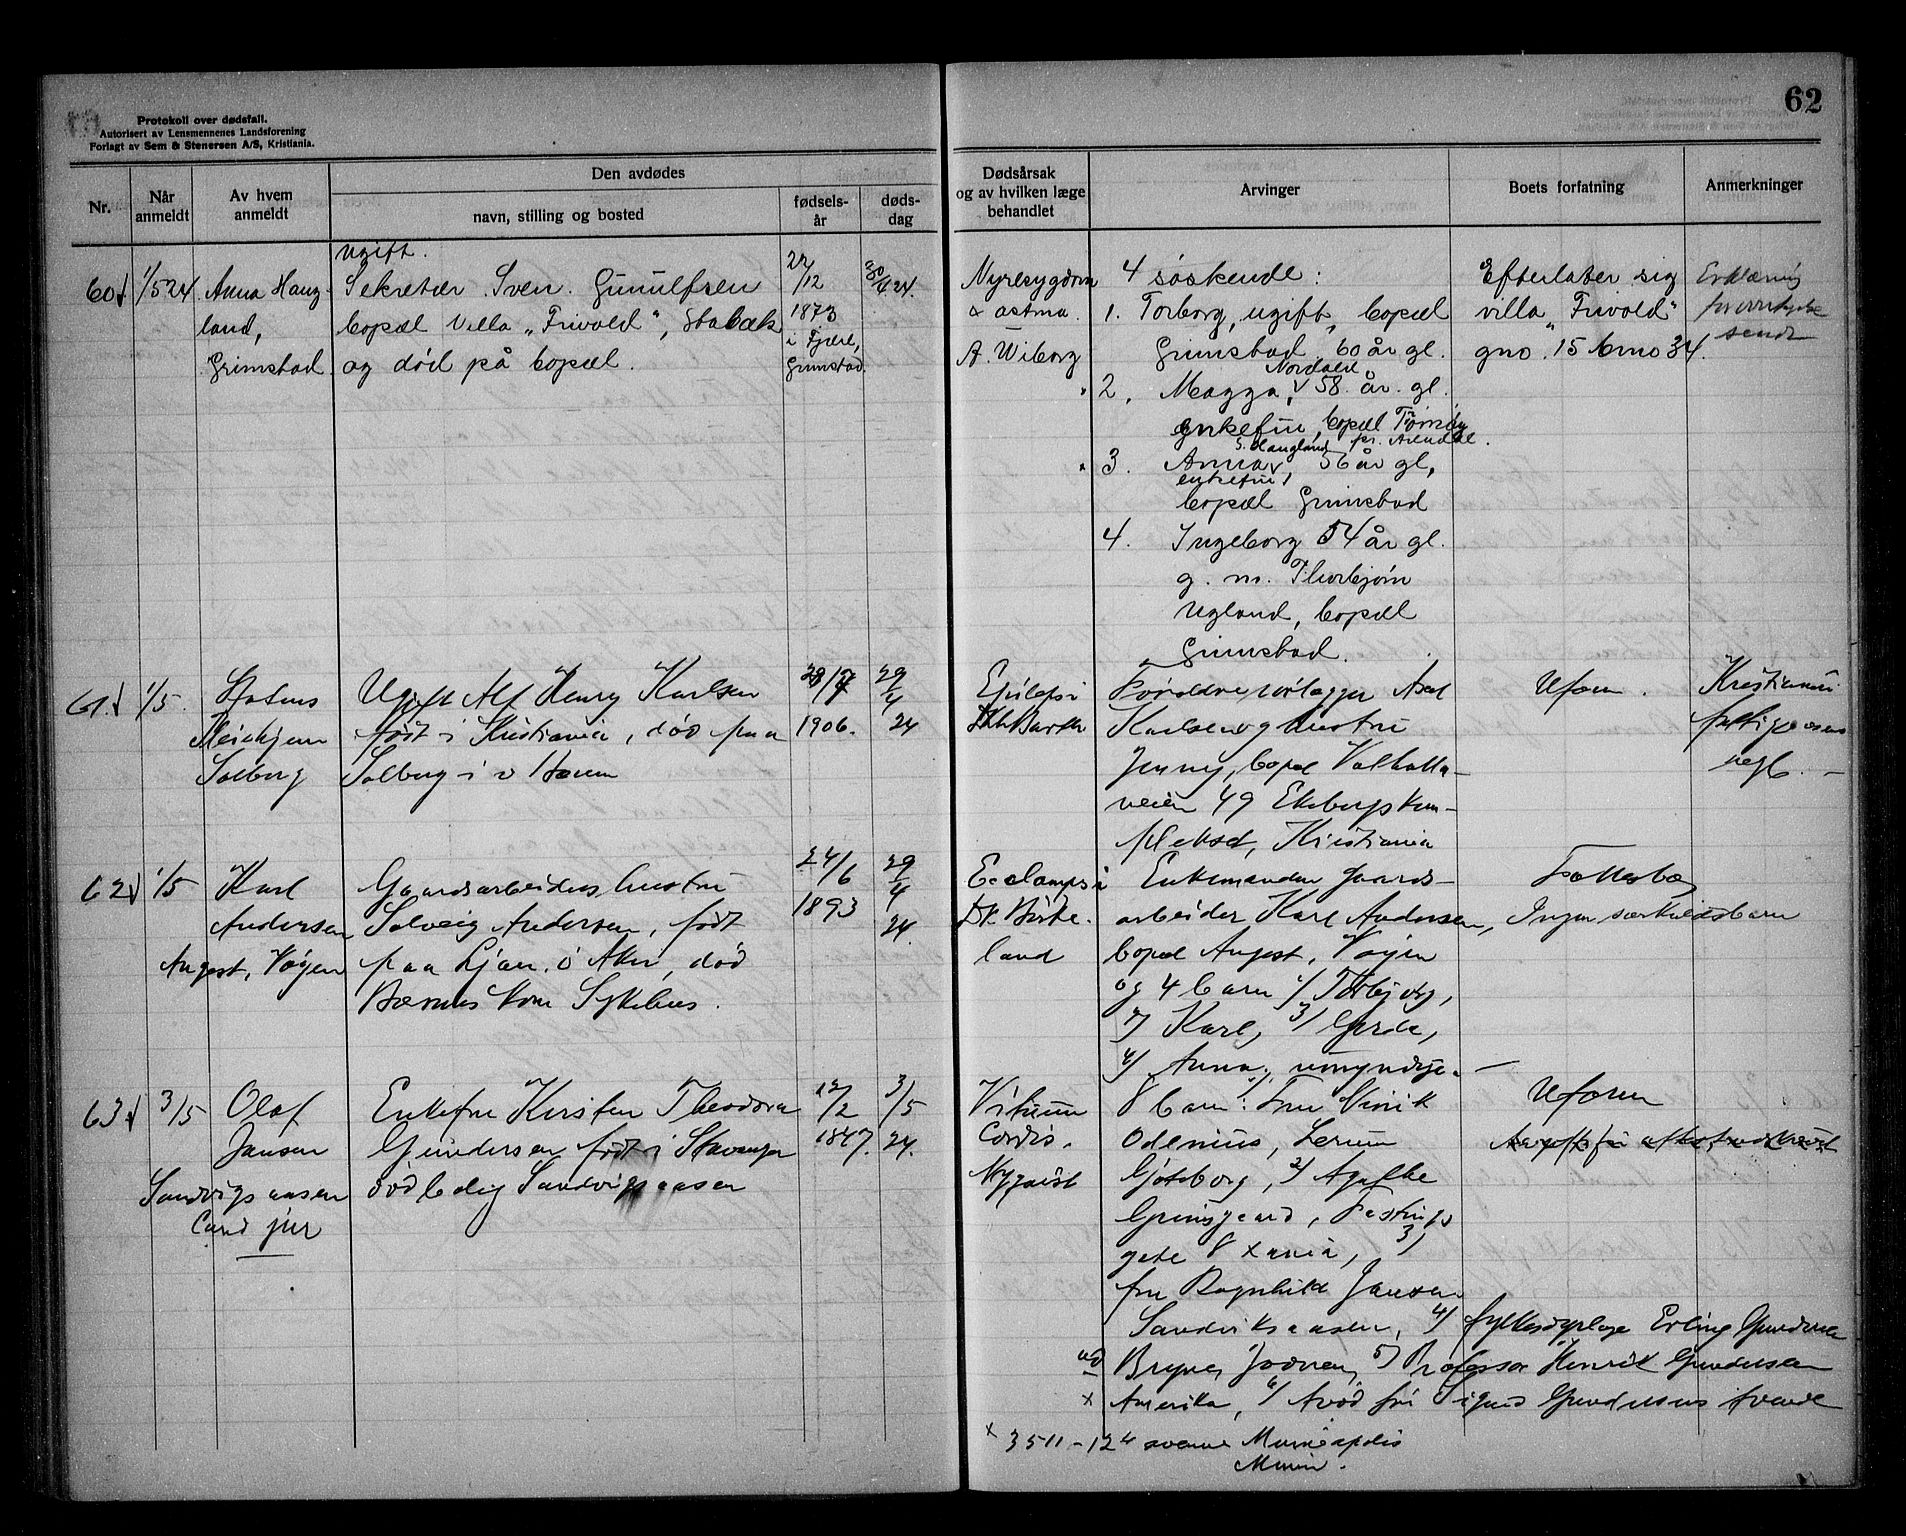 62
Protokoll over dødsfall.
Autorisert av Lensmennenes Landsforening
Forlagt av Sem & Stenersen A/S, Kristiania.
Nr.
Når anmeldt
Av hvem anmeldt
Den avdødes
navn, stilling og bosted
fødsels-år
døds-dag
Dødsårsak og av hvilken læge behandlet
Arvinger
Boets forfatning
Anmerkninger
60
1/5 24
Anna Haug-
land,
Grimstad
ugift.
Sekretær Sven Gunulfsen
bopæl Villa "Frivold", Stabæk
og død på bopæl.
22/12
1873
i Fjære,
Grimstad
30/4 24.
Nyresygdom
& astma.
A. Wiborg
4 søskende:
1. Torborg, ugift, bopæl
Grimstad 60 år gl.
Nordahl
2. Magga, 58 år gl.
enkefru, bopæl Tromøy
pr. Arendal.
G. Haugland
3. Anna 56 år gl,
enkefru
bopæl Grimstad
4. Ingeborg 54 år gl.
g. m. Thorbjørn
Ugland, bopæl
Grimstad.
Efterlater sig
villa "Frivold"
gno. 15 bno 34.
Erklæring
sendt
61.
1/5.
Statens
Pleiehjem
Solberg
Ugift Alf Henry Karlsen
født i Kristiania, død paa
Solberg i Ø Bærum
28/7
1906.
29/4
24
Epilepsi
Barth
Forældre, Axel
Karlsen og hustru
Jenny, bopæl Valhalla-
veien 49 Ekebergskom-
plekset, Kristiania
Uform.
Kristiania
fattigvæsen
62
1/5
Karl
Andersen
Angest, Vøyen
Gaardsarbeiders hustru
Solveig Andersen, født
paa Ljan i Aker, død
Bærums kom Sykehus.
24/6
1893
29/4
24.
Eclampsi
Dr. Birke-
land
Enkemanden gaards-
arbeider Karl Andersen,
bopæl Angest, Vøyen
og 4 barn 1/ Torbjørg,
2/ Karl, 3/ Gerda,
4/ Anna, umyndige.
Fællesbo
Ingen særkuldsbarn
63
3/5
Olaf
Jansen
Sandvigsaasen
Cand jur
Enkefru Kirsten Theodora
Gundersen født i Stavanger
død ledig Sandvigsaasen
12/2
1847.
3/5
24.
Vitium
Cordis.
Nyquist
8 barn: 1/ Fru
Odenius, Lerum
Gøteborg, 2/ Agathe
Grimsgaard, Festnings
gate 8 Xania, 3/
fru Ragnhild Jansen
Sandviksaasen, 4/ fylkesdyrlæge Erling Gundersen
Bryne, Jæderen, 5/ Professor Henrik Gundersen
x Amerika, 6/ Avdød fru Sigurd Gundersens
Uform
x 3511-12 4 avenue Minneapolis
Minn.